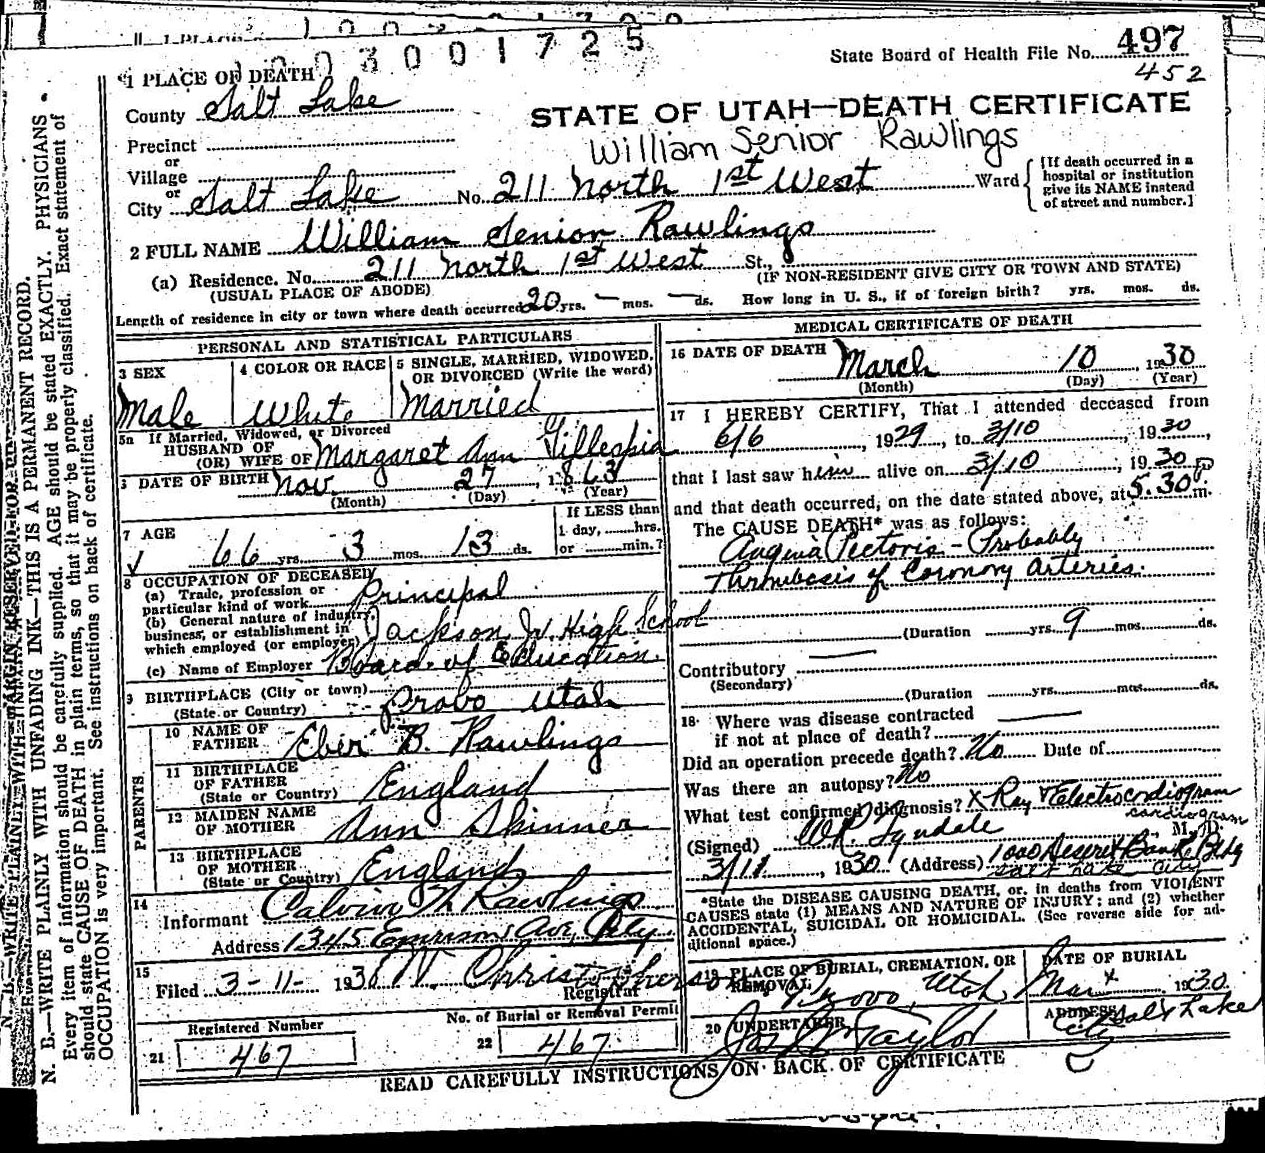 1003001725
State Board of Health File No. 497
452
1 PLACE OF DEATH
County Salt Lake
STATE OF UTAH—DEATH CERTIFICATE
William Senior Rawlings
Precinct
or
Village
or
City Salt Lake No. 211 North 1st West Ward
[If death occurred in a
hospital or institution
give its NAME instead
of street and number.]
2 FULL NAME William Senior Rawlings
(a) Residence. No. 211 North 1st West St.,
(USUAL PLACE OF ABODE)
(IF NON-RESIDENT GIVE CITY OR TOWN AND STATE)
Length of residence in city or town where death occurred 20 yrs. — mos. — ds. How long in U. S., if of foreign birth? yrs. mos. ds.
PERSONAL AND STATISTICAL PARTICULARS
3 SEX
Male
4 COLOR OR RACE
White
5 SINGLE, MARRIED, WIDOWED,
OR DIVORCED (Write the word)
Married
5a If Married, Widowed, or Divorced
HUSBAND OF
(OR) WIFE OF Margaret Ann Gillespia
DATE OF BIRTH Nov. 27, 1863
(Month) (Day) (Year)
7 AGE
66 yrs. 3 mos. 13 ds.
If LESS than
1 day, ......hrs.
or ......min.?
8 OCCUPATION OF DECEASED
(a) Trade, profession or
particular kind of work Principal
(b) General nature of industry,
business, or establishment in
which employed (or employer) Jackson Jr. High School
(c) Name of Employer Board of Education
9 BIRTHPLACE (City or town)
(State or Country) Provo Utah
PARENTS
10 NAME OF
FATHER Eber B. Rawlings
11 BIRTHPLACE
OF FATHER
(State or Country) England
12 MAIDEN NAME
OF MOTHER Ann Skinner
13 BIRTHPLACE
OF MOTHER
(State or Country) England
14
Informant Calvin Rawlings
Address 1345 Emerson Ave, City
15
Filed 3-11-1930 W. Christopherson
Registrar
Registered Number
21 467
No. of Burial or Removal Permit
22 467
MEDICAL CERTIFICATE OF DEATH
16 DATE OF DEATH March 10, 1930
(Month) (Day) (Year)
17 I HEREBY CERTIFY, That I attended deceased from
6/6, 1929, to 3/10, 1930,
that I last saw him alive on 3/10, 1930
and that death occurred, on the date stated above, at 5.30 P m.
The CAUSE DEATH* was as follows:
Angina Pectoris - Probably
Thrombosis of Coronary Arteries.
(Duration ......yrs. 9 mos. ......ds.
Contributory
(Secondary)
(Duration ......yrs. ......mos. ......ds.
18 Where was disease contracted
if not at place of death?
Did an operation precede death? No Date of
Was there an autopsy? No
What test confirmed diagnosis? X Ray & Electrocardiogram
cardiogram
(Signed) W.R. Tyndale, M. D.
3/11, 1930 (Address) 1000 Deseret Bank Bldg
Salt Lake City
*State the DISEASE CAUSING DEATH, or, in deaths from VIOLENT
CAUSES state (1) MEANS AND NATURE OF INJURY; and (2) whether
ACCIDENTAL, SUICIDAL OR HOMICIDAL. (See reverse side for ad-
ditional space.)
19 PLACE OF BURIAL, CREMATION, OR
REMOVAL Provo, Utah
DATE OF BURIAL
Mar 1930
20 UNDERTAKER
Jos Wm Taylor
ADDRESS
Salt Lake
City
READ CAREFULLY INSTRUCTIONS ON BACK OF CERTIFICATE
N. B.—WRITE PLAINLY WITH UNFADING INK—THIS IS A PERMANENT RECORD.
Every item of information should be carefully supplied. AGE should be stated EXACTLY. PHYSICIANS
should state CAUSE OF DEATH in plain terms, so that it may be properly classified. Exact statement of
OCCUPATION is very important. See instructions on back of certificate.